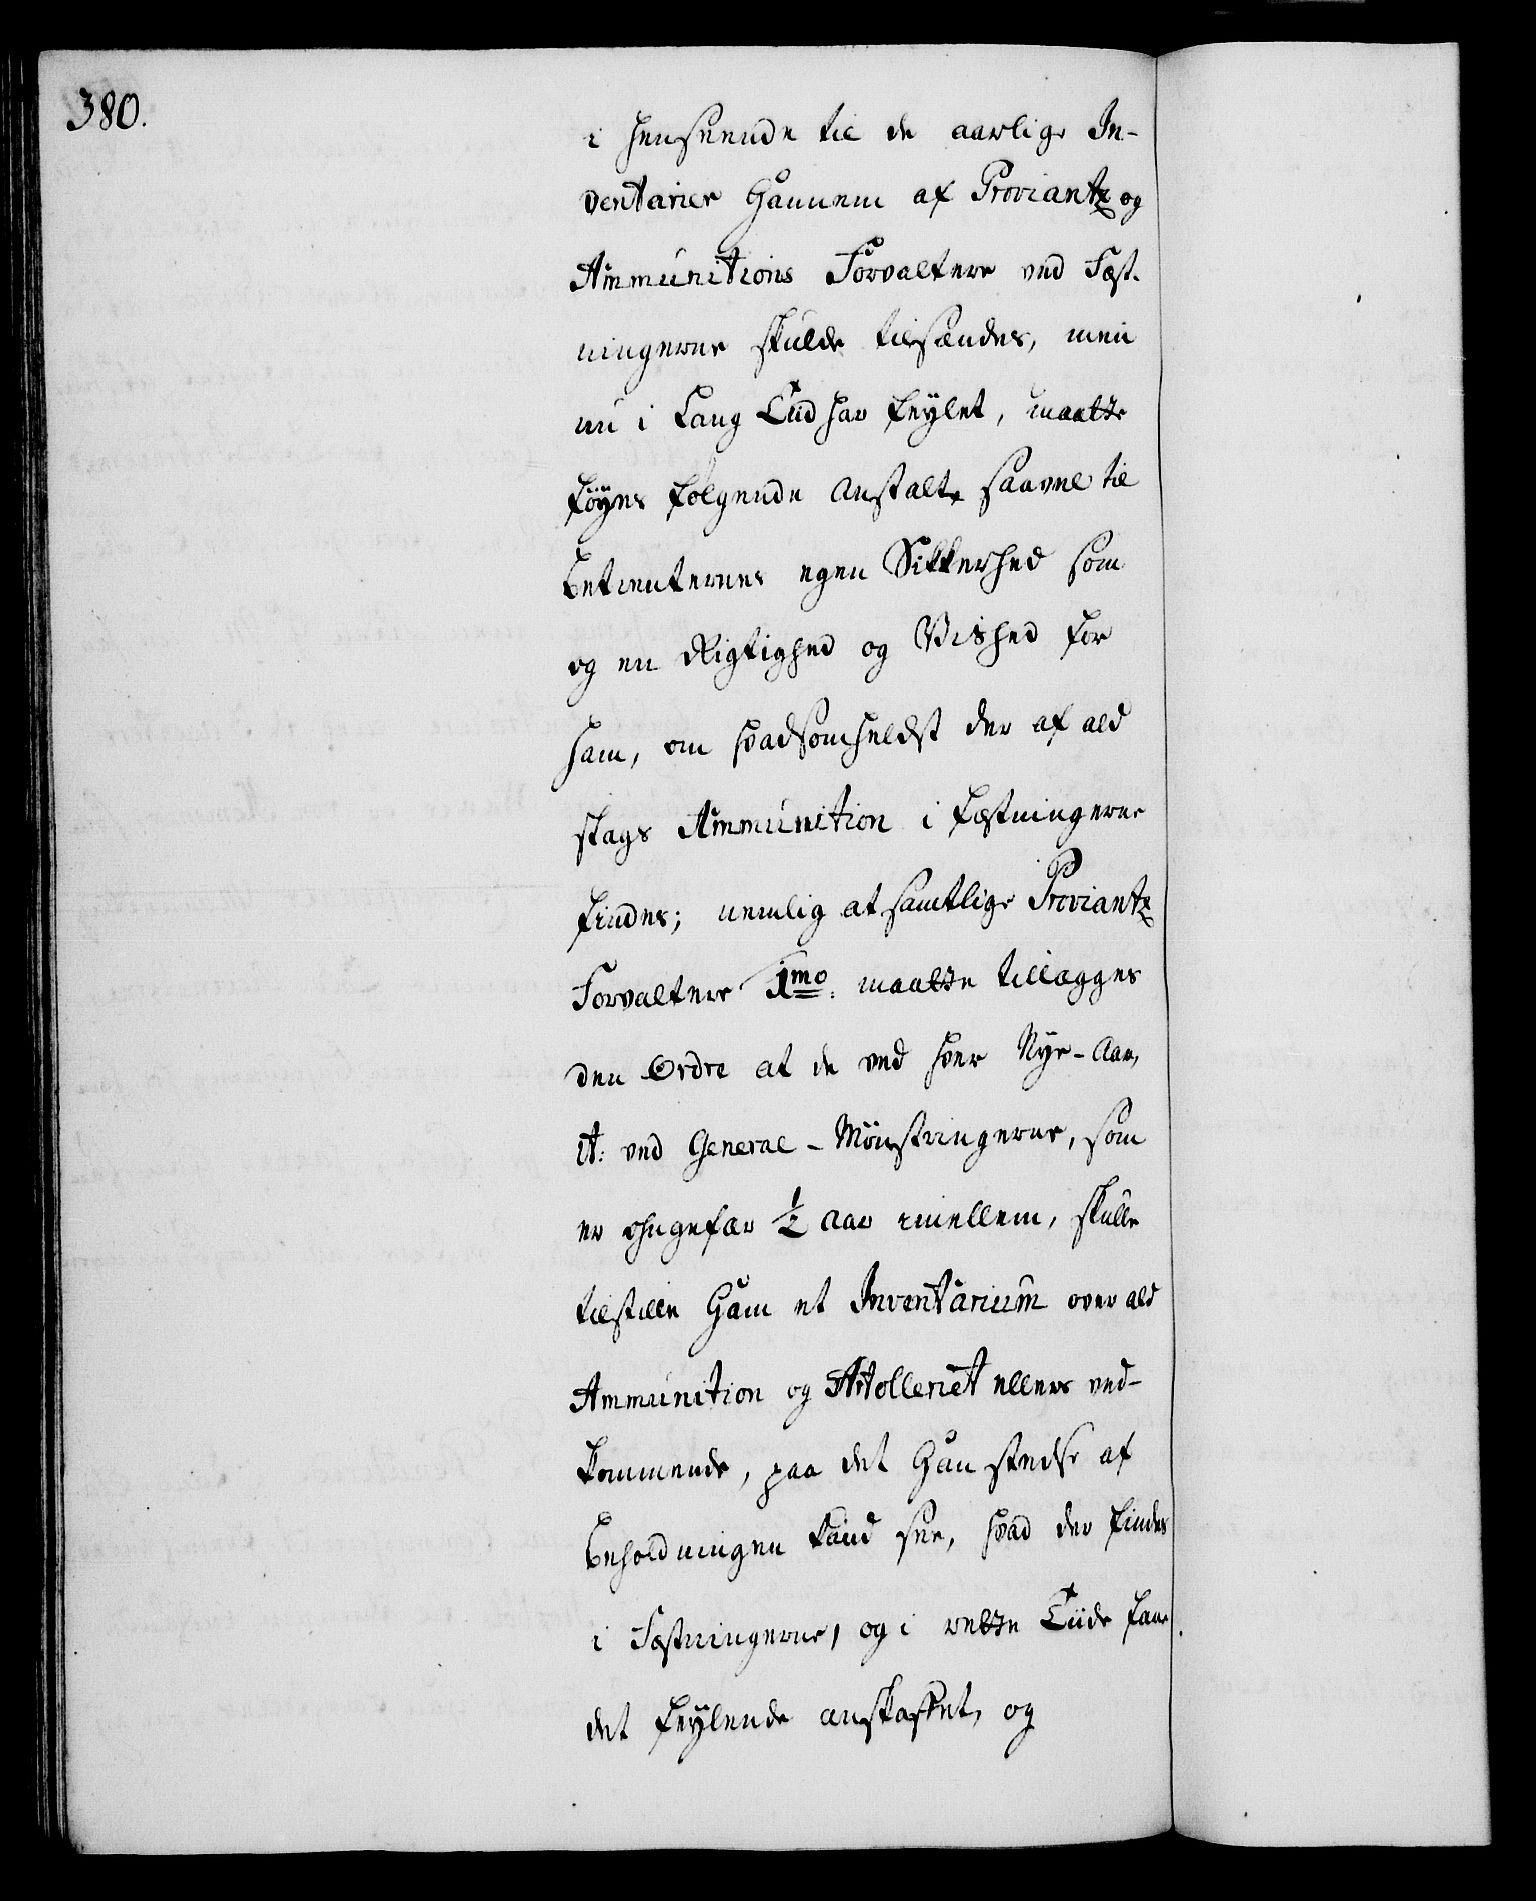 380.
i henseende til de aarlige In-
ventarier Hannem af Proviantz og
Ammunitions Forvaltere ved Fæst-
ningerne skulde tilsændes, men
nu i lang Tiid har feylet, maatte
föyes følgende Anstalt, saavel til
betienternes egen Sikkerhed som
og en Rigtighed og Vished for
ham, om hvadsomhelst der af ald
slags Ammunition i fæstningerne
findes; nemlig at samtlige Proviantz
Forvaltere 1mo: maatte tillægges
den Ordre at de ved hver Nye-Aar,
It: ved General-Mönstringerne, som
er ohngefær ½ Aar imellem, skulle
tilstille Ham et Inventarium over ald
Ammunition og Artolleriet ellers ved-
kommende, paa det Han stedse af
beholdningen kand see, hvad der findes
i Fæstningerne, og i rette Tiide faae
det feylende anskaffet, og